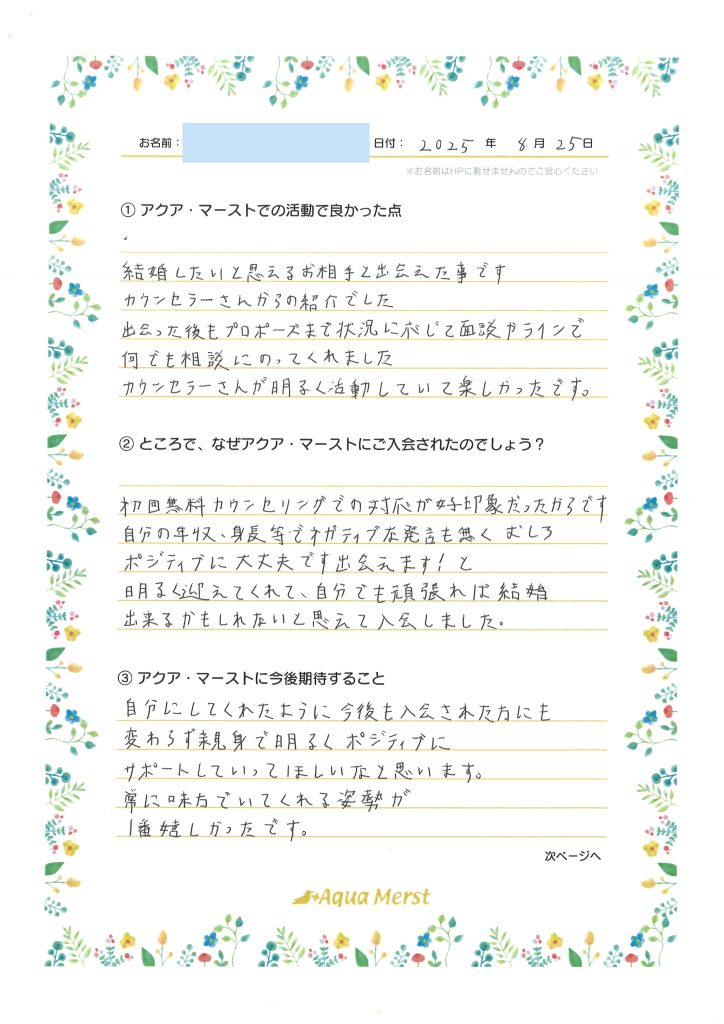 お名前：
日付： 2025 年 8 月 25 日
※お名前はHPに載せませんのでご安心ください
① アクア・マーストでの活動で良かった点
結婚したいと思えるお相手と出会えた事です
カウンセラーさんからの紹介でした
出会った後もプロポーズまで状況に応じて面談やラインで
何でも相談にのってくれました
カウンセラーさんが明るく活動していて楽しかったです。
② ところで、なぜアクア・マーストにご入会されたのでしょう？
初回無料カウンセリングでの対応が好印象だったからです
自分の年収、身長等でネガティブな発言も無く むしろ
ポジティブに大丈夫です出会えます！と
明るく迎えてくれて、自分でも頑張れば結婚
出来るかもしれないと思えて入会しました。
③ アクア・マーストに今後期待すること
自分にしてくれたように今後も入会された方にも
変わらず親身で明るくポジティブに
サポートしていってほしいなと思います。
常に味方でいてくれる姿勢が
1番嬉しかったです。
次ページへ
Aqua Merst